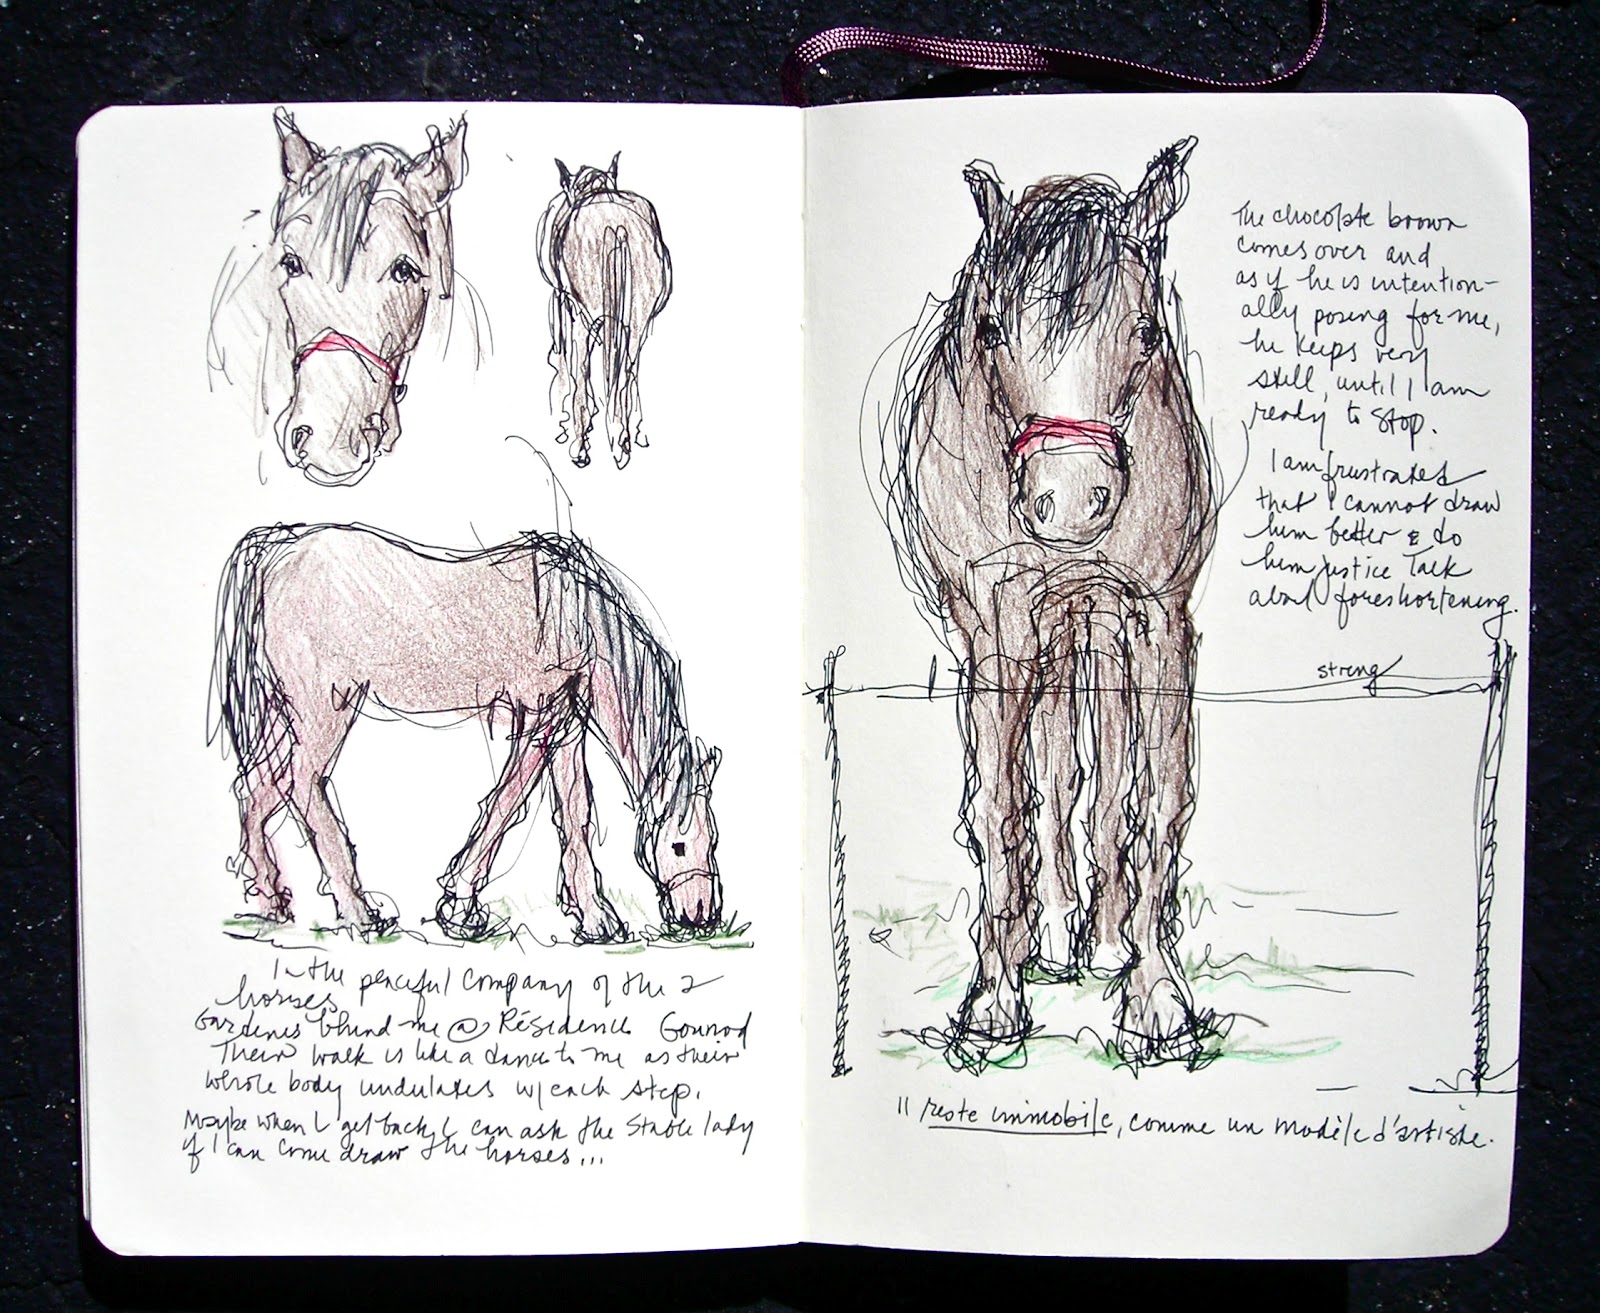 In the peaceful company of the 2
horses
Gardenes behind me @ Résidence Gounod
Their walk is like a dance to me as their
whole body undulates w/ each step.
Maybe when I get back, I can ask the stable lady
if I can come draw the horses...
The chocolate brown
comes over and
as if he is intention-
ally posing for me,
he keeps very
still, until I am
ready to stop.
I am frustrated
that I cannot draw
him better & do
him justice Talk
about foreshortening.
string
Il reste immobile, comme un modèle d'artiste.